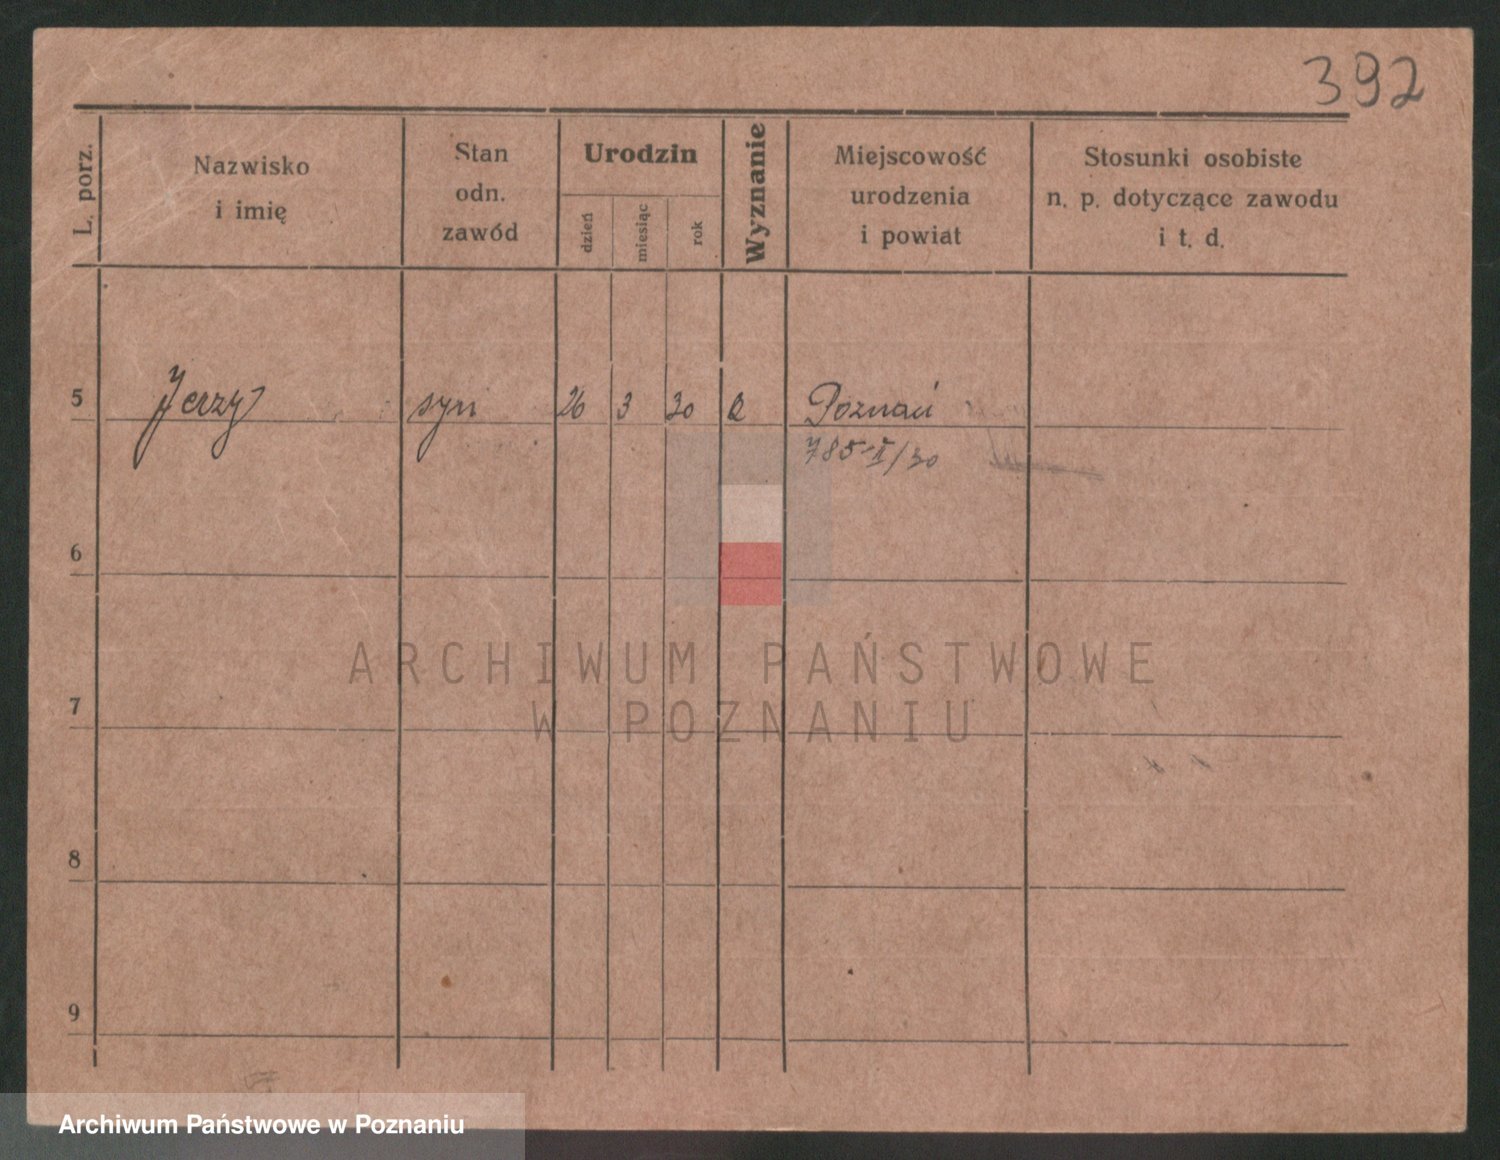 392
L. porz.
Nazwisko
i imię
Stan
odn.
zawód
Urodzin
dzień
miesiąc
rok
Wyznanie
Miejscowość
urodzenia
i powiat
Stosunki osobiste
n. p. dotyczące zawodu
i t. d.
5 Jerzy syn 26 3 30 Poznań
785 I/30
6
ARCHIWUM PAŃSTWOWE
W POZNANIU
7
8
9
Archiwum Państwowe w Poznaniu